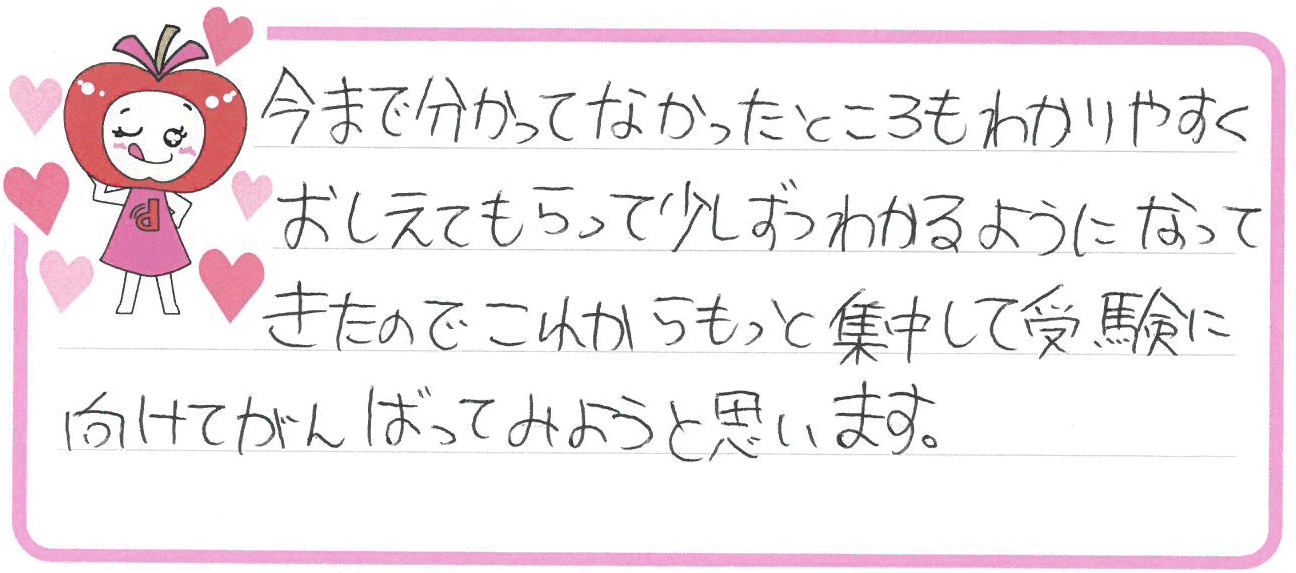 今まで分かってなかったところもわかりやすく
おしえてもらって少しずつわかるようになって
きたのでこれからもっと集中して受験に
向けてがんばってみようと思います。